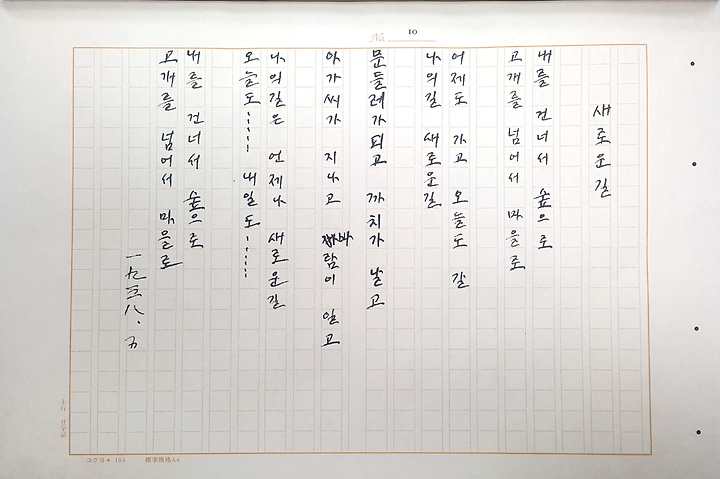 10
새로운길
내를 건너서 숲으로
고개를 넘어서 마을로
어제도 가고 오늘도 갈
나의길 새로운길
문들레가피고 까치가 날고
아가씨가 지나고 바람이 일고
나의길은 언제나 새로운길
오늘도…… 내일도……
내를 건너서 숲으로
고개를 넘어서 마을로
一九三八、五